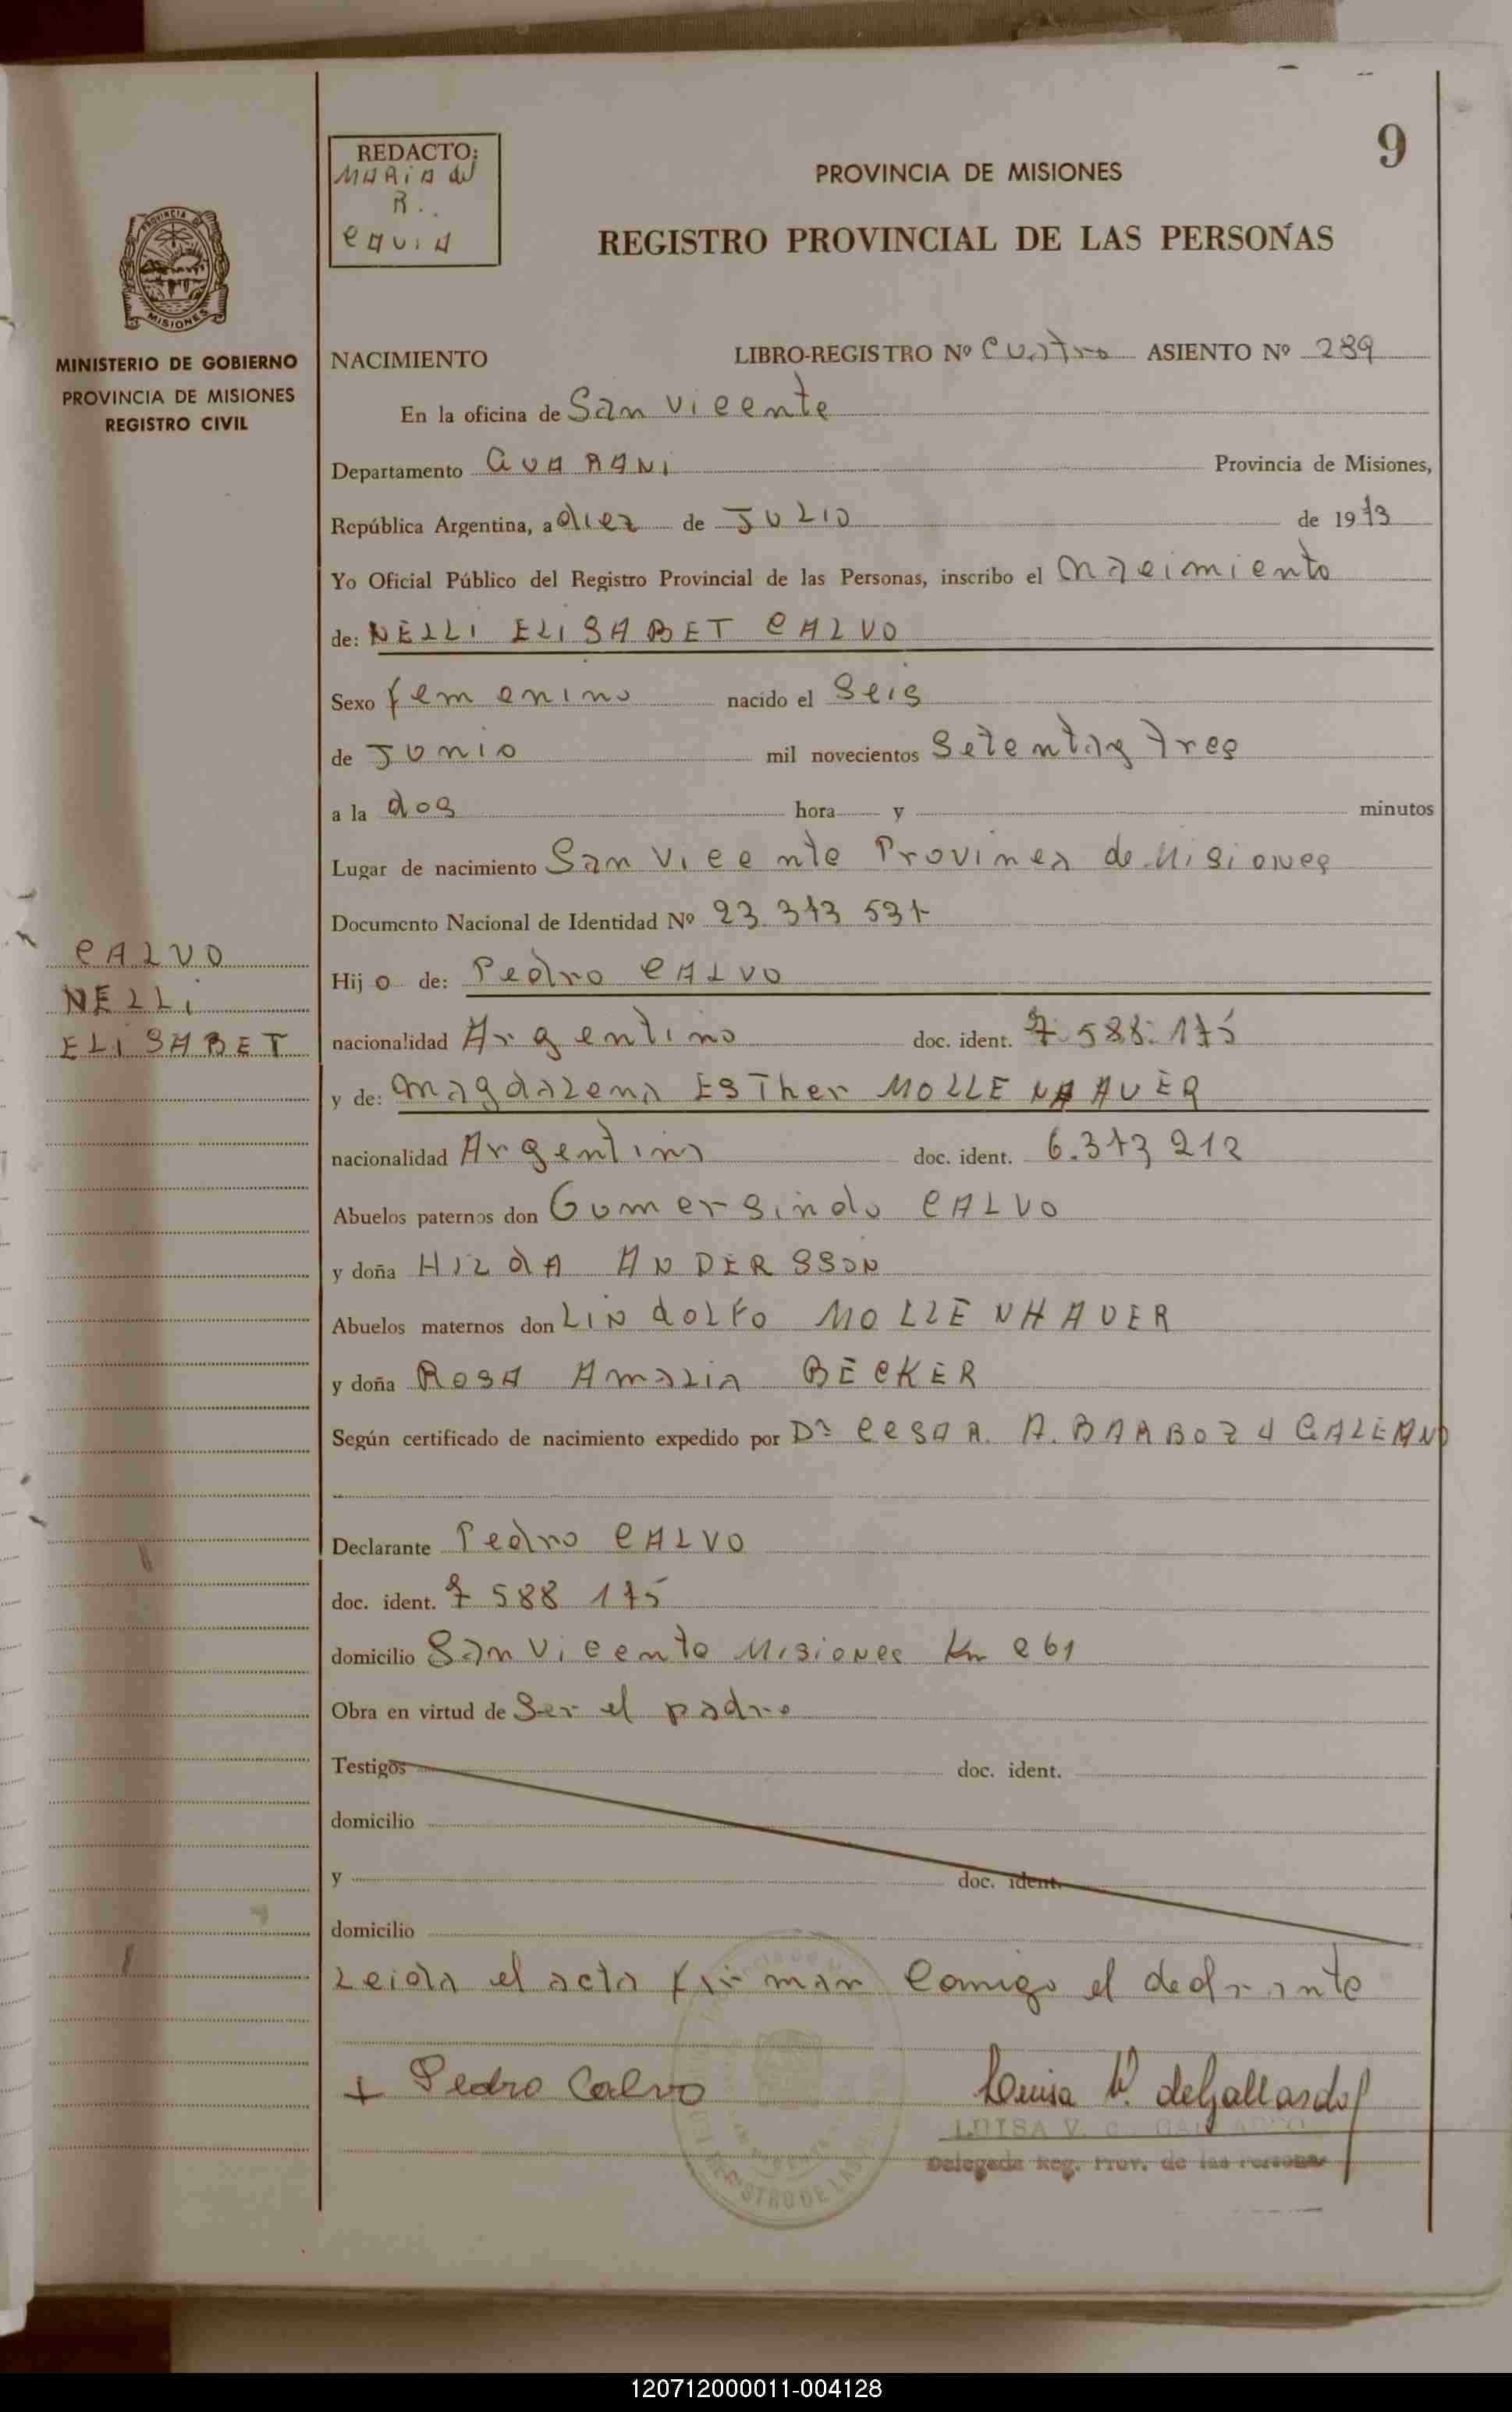 9
REDACTO:
MARIA del
R.
PROVINCIA DE MISIONES
REGISTRO PROVINCIAL DE LAS PERSONAS
MISIONES
MINISTERIO DE GOBIERNO
PROVINCIA DE MISIONES
REGISTRO CIVIL
NACIMIENTO LIBRO-REGISTRO Nº Cuatro ASIENTO Nº 289
En la oficina de San Vicente
Departamento GUARANI Provincia de Misiones,
República Argentina, a diez de JULIO de 1973
Yo Oficial Público del Registro Provincial de las Personas, inscribo el nacimiento
de: NELLI ELISABET CALVO
Sexo femenino nacido el Seis
de JUNIO mil novecientos Setenta y tres
a la dos hora y minutos
Lugar de nacimiento San Vicente Provincia de Misiones
Documento Nacional de Identidad Nº 23.373 537
CALVO
NELLI
ELISABET
Hijo de: Pedro CALVO
nacionalidad Argentino doc. ident. 7.588.175
y de: Magdalena ESTher MOLLENHAUER
nacionalidad Argentina doc. ident. 6.373 212
Abuelos paternos don Gumersindo CALVO
y doña HILdA ANDERSSON
Abuelos maternos don LINdOLFO MOLLENHAUER
y doña ROSA Amalia BECKER
Según certificado de nacimiento expedido por Dr CESAR. A. BARBOZA GALEANO
Declarante Pedro CALVO
doc. ident. 7 588 175
domicilio San Vicente Misiones Km 261
Obra en virtud de Ser el padre
Testigos doc. ident.
domicilio
y doc. ident.
domicilio
Leida el acta firman Comigo el declarante
+ Pedro Calvo Luisa V. de Gallardo
LUISA V. d. GALLARDO
Delegada Reg. Prov. de las Personas
120712000011-004128